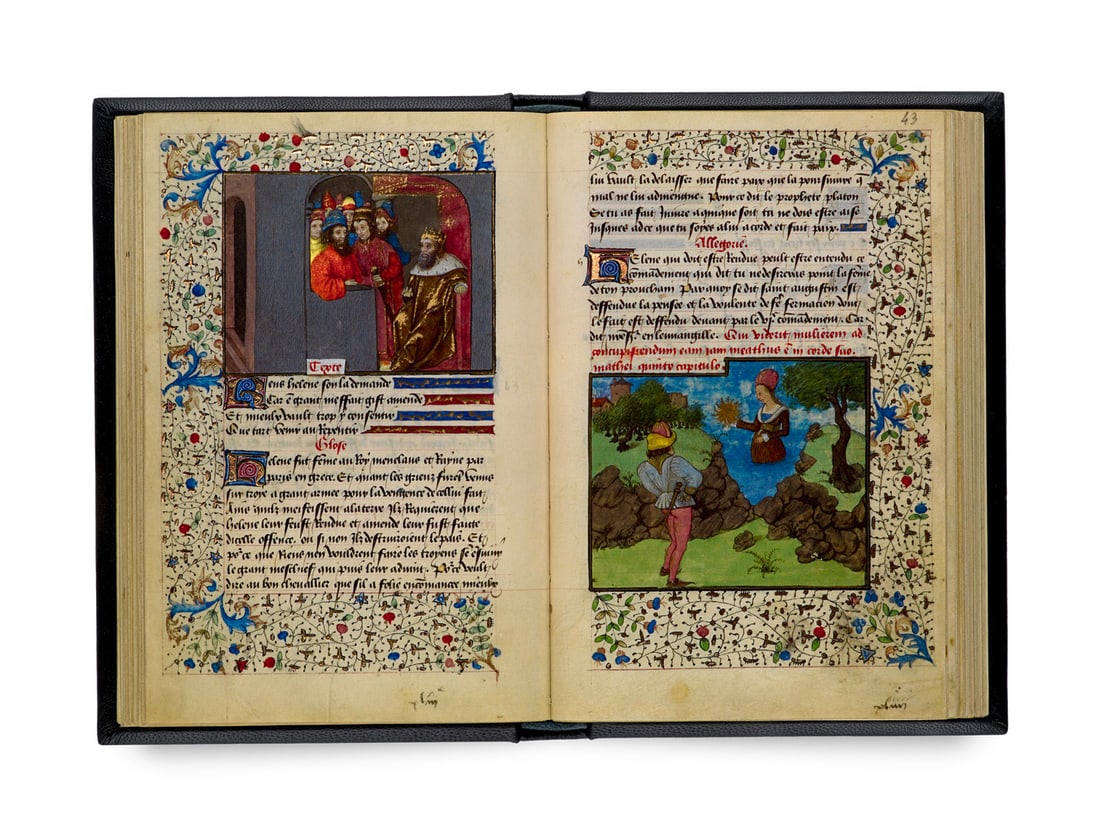 Texte
Rens helene son la demande
Car ē grant meffait gist amende
Et mieulx vault trop y consentir
Que tart venir au Repentir
Glose
Helene fut fēme au Roy menelaus et Rauye par
paris en grece. Et quant les grieux furēt venus
sur troye a grant armee pour la vengence de cellui fait
Ains quilz meffeissent a laterre Ilz Requirent que
helene leur feust Rendue et amende leur fust faicte
dicelle offence. ou si non Ilz destruiroient le pais. Et
po'ce que Riens nen vouldrent faire les troyens
le grant meschief qui puis leur advint. Po'ce veult
dire au bon chevallier que sil a folie encomance mieulx
43
lui vault la delaisser que faire paix que la poursuivre q̄
mal ne lui admeine. Pource dit le prophete platon
Se tu as fait Iniure a quique soit tu ne dois estre aise
Iusques ad ce que tu soyes a lui acorde et fait paix.
Allegorie
Helene qui doit estre Rendue peult estre entendu ce
cōmādement qui dit tu ne desireras point la fēme
de ton prouchain. Par quoy se dit saint augustin est
deffendue la pensee et la voulente de fornication dont
le fait est deffendu devant par le vj cōmādement. Car
dit en leuvangille. Qui viderit mulierem ad
concupiscendum eam iam mechatus ē in corde suo.
mathei quinto capitulo